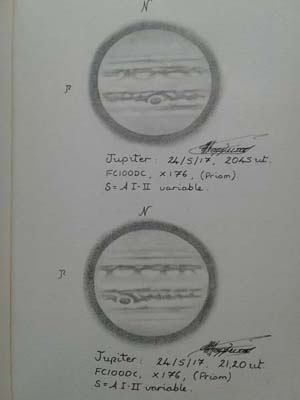 N
P
Jupiter: 24/5/17, 2045 ut.
FC100DC, x176, (Prism)
S = A I-II variable.
N
P
Jupiter: 24/5/17, 21,20 ut
FC100DC, x176, (Prism)
S = A I-II variable.